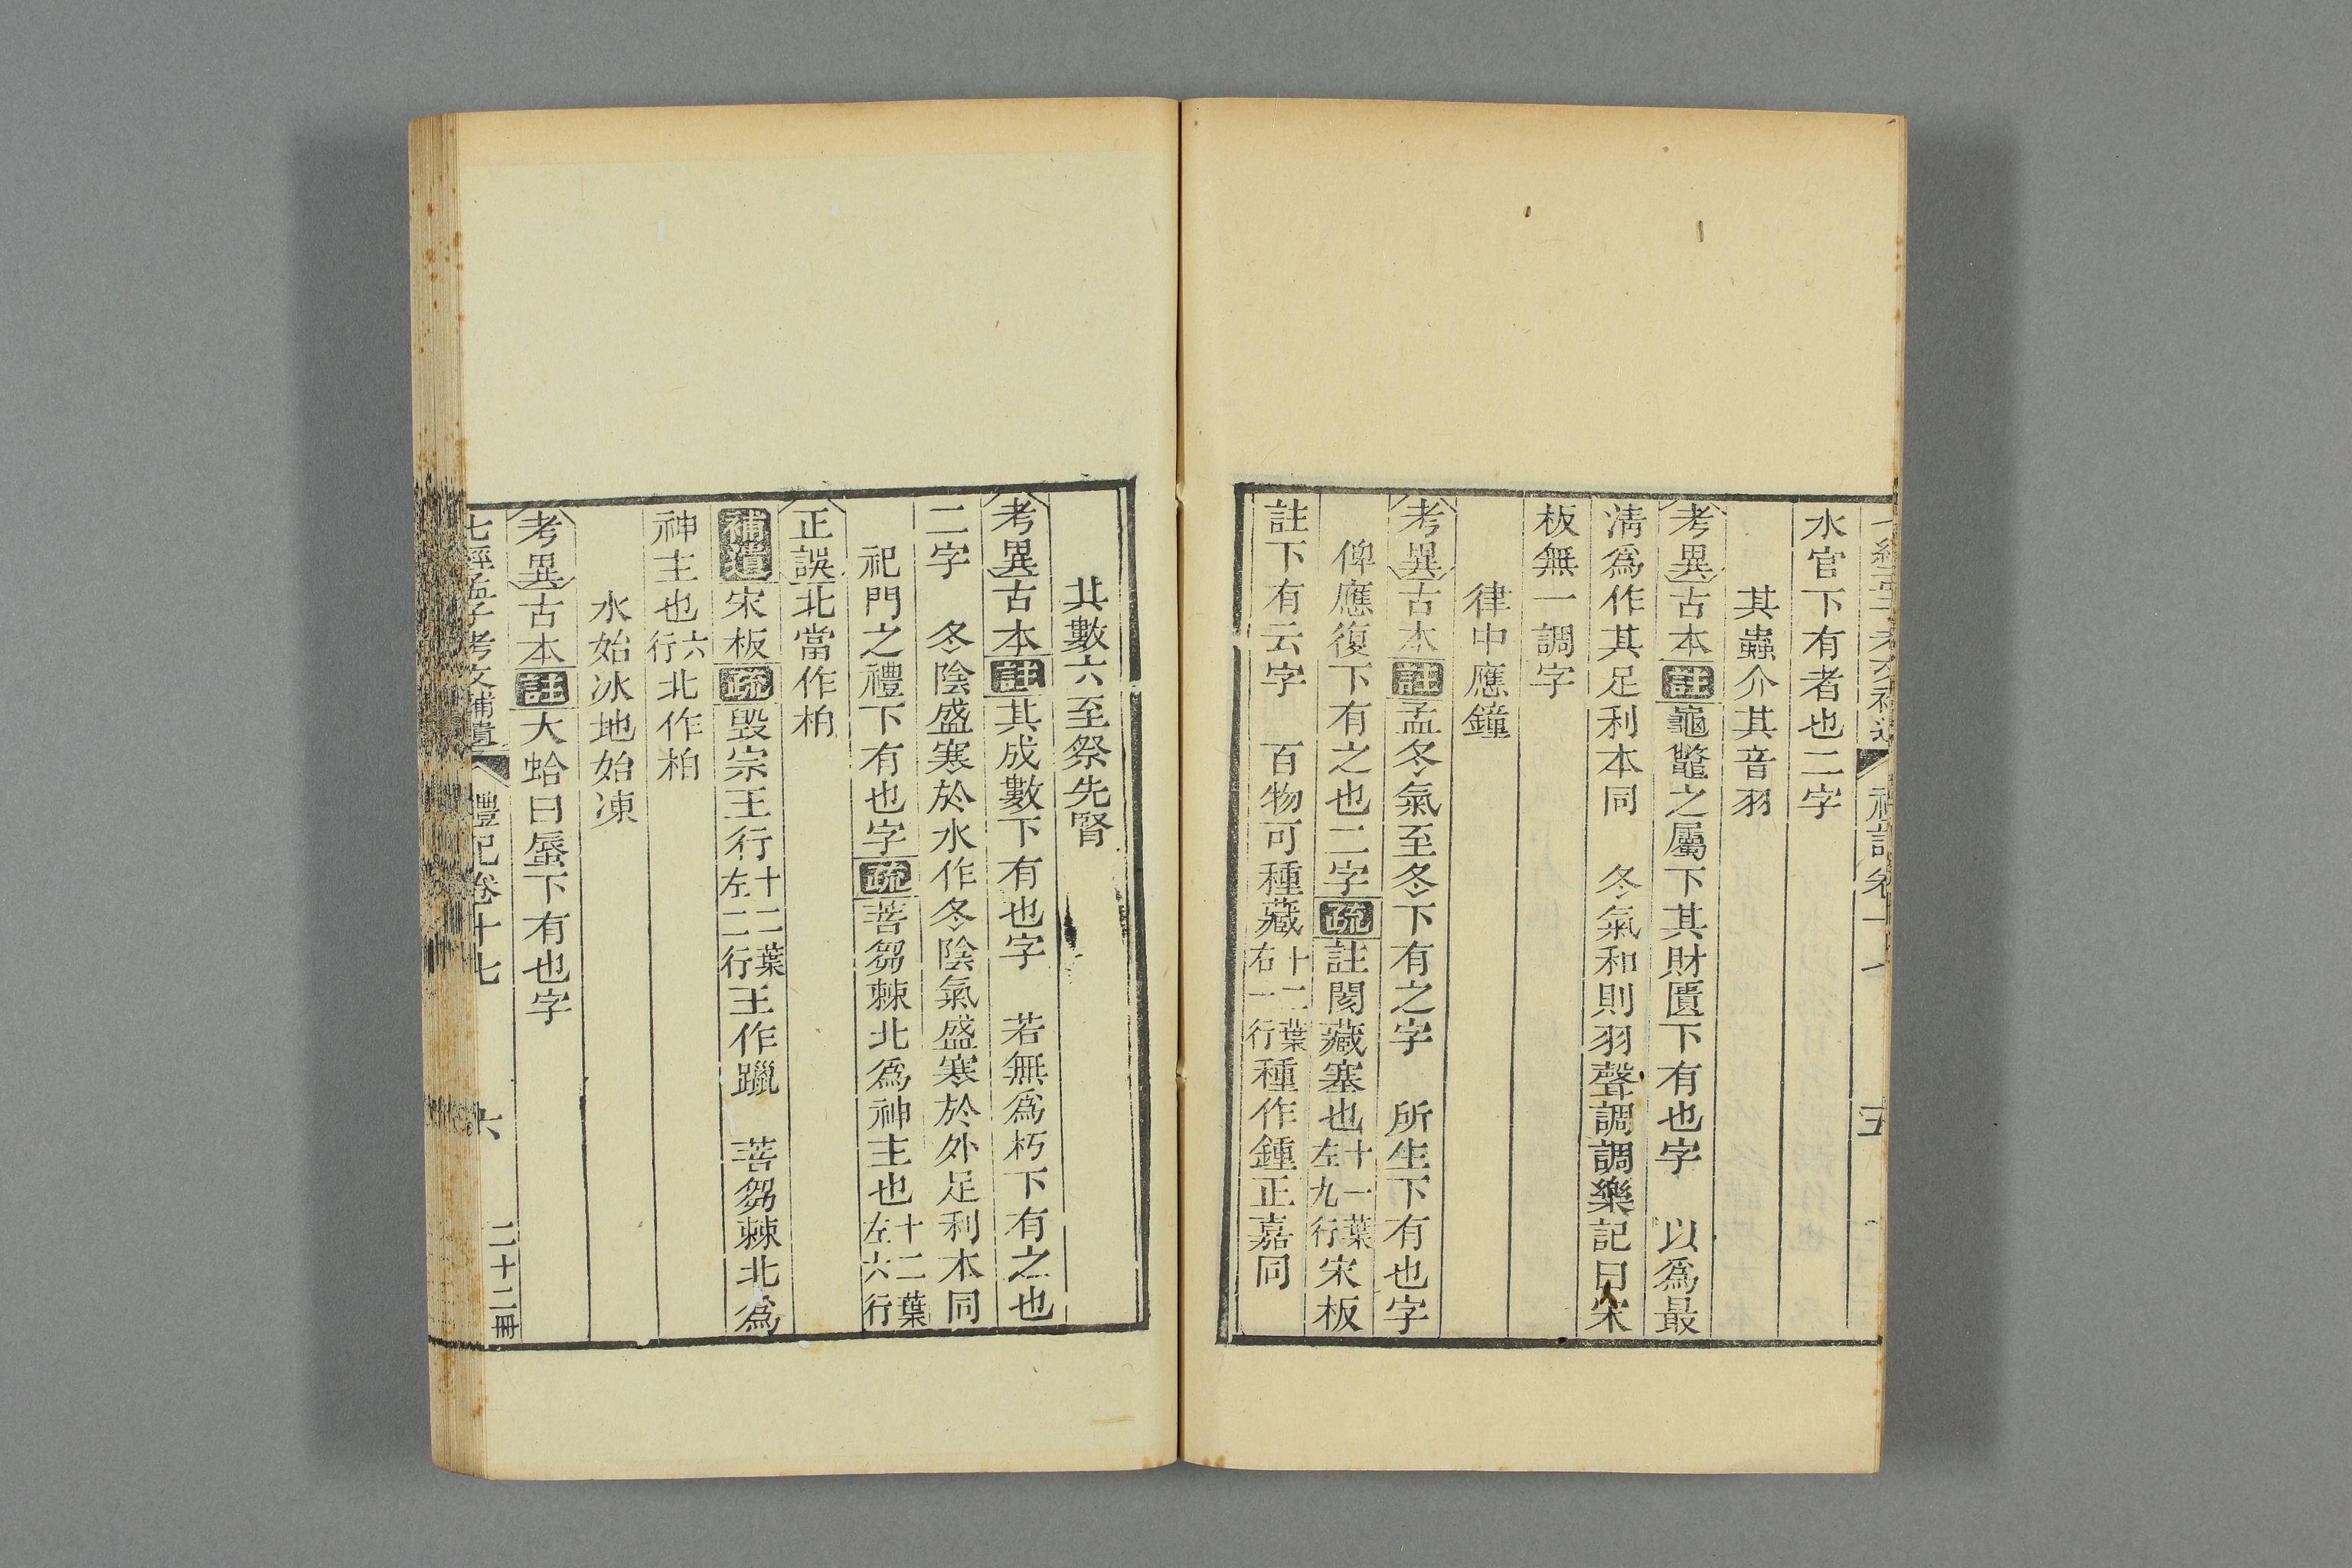 水官下有者也二字
其蟲介其音羽
考異古本註龜鼈之屬下其財匱下有也字　以爲最
清爲作其足利本同　冬氣和則羽聲調調樂記曰宋
板無一調字
律中應鐘
考異古本註孟冬氣至冬下有之字　所生下有也字
俾應復下有之也二字疏註閡藏塞也十一葉左九行宋板
註下有云字　百物可種藏十二葉右一行種作鍾正嘉同
其數六至祭先腎
考異古本註其成數下有也字　若無爲朽下有之也
二字　冬陰盛寒於水作冬陰氣盛寒於外足利本同
祀門之禮下有也字疏菩芻棘北爲神主也十二葉左六行
正誤北當作柏
補遺宋板疏毀宗王行十二葉左二行王作躐　菩芻棘北爲
神主也六行北作柏
水始冰地始凍
考異古本註大蛤曰蜃下有也字
七經孟子考文補遺　禮記卷十七　六　二十二冊